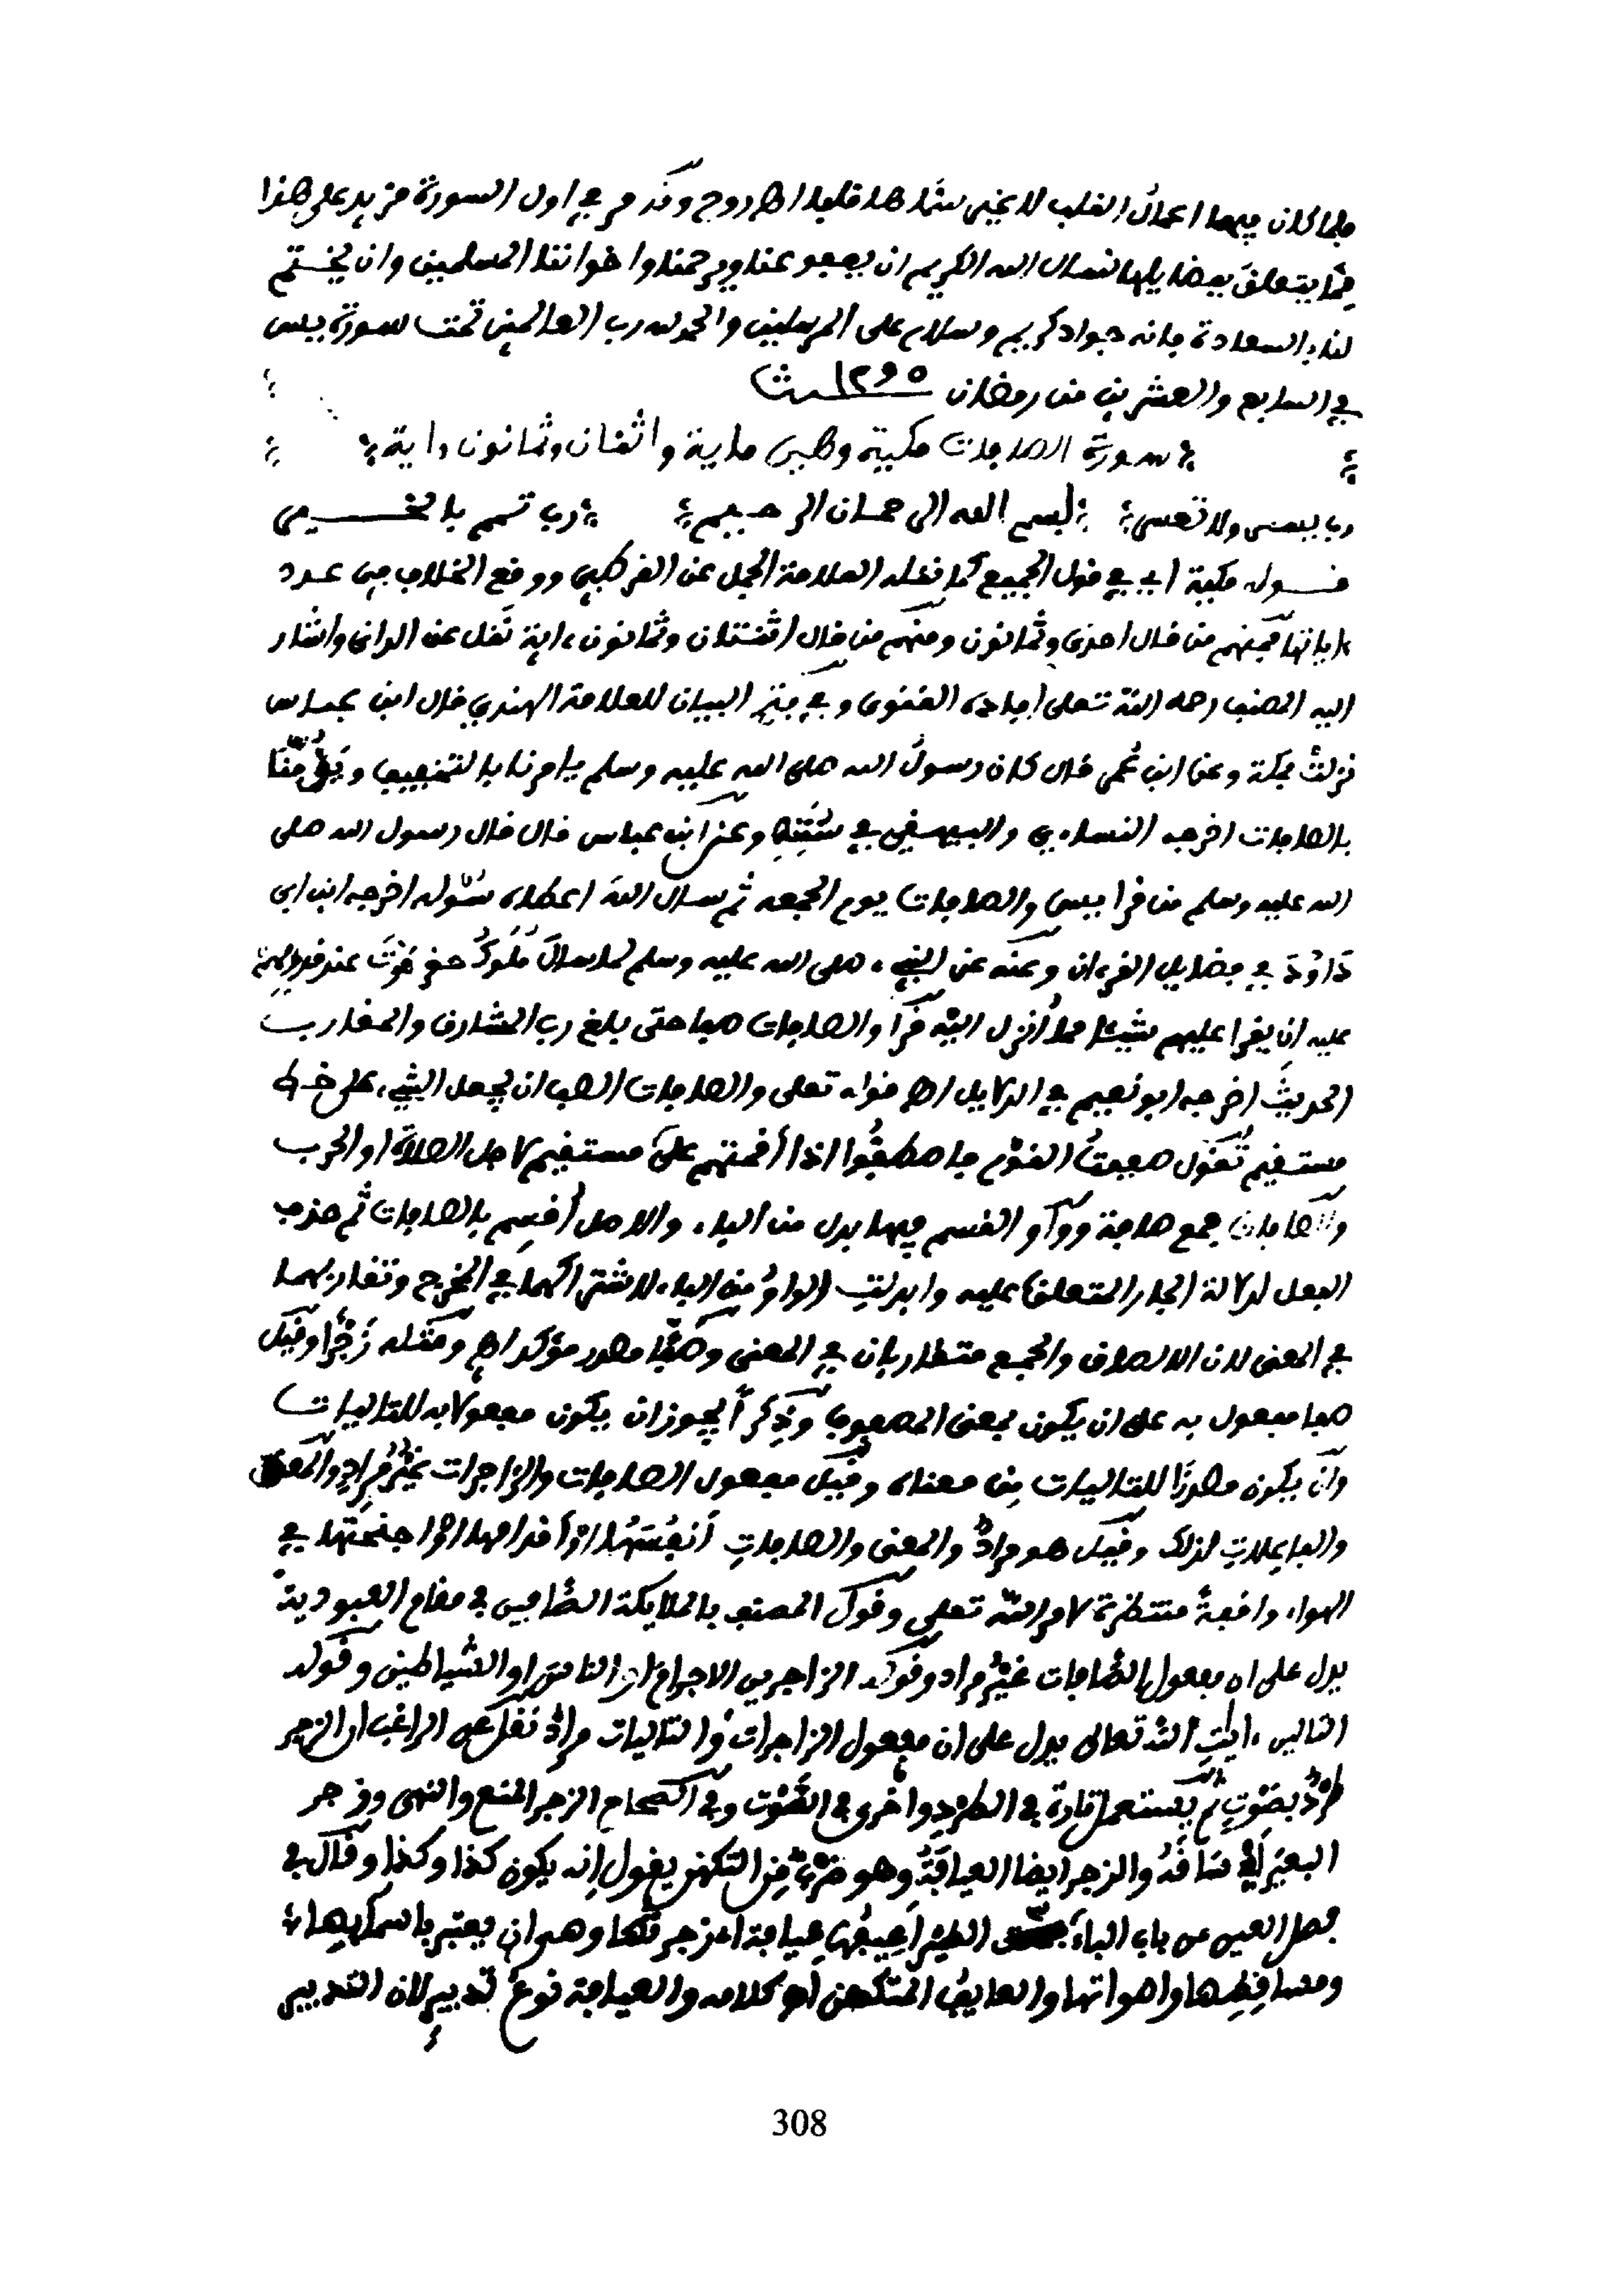 فلما كان فيها اعمال القلب لا غير سماها قلبا اه روح وقد مر في اول السورة مزيد على هذا
مما يتعلق بفضايلها نسال الله الكريم ان يعفو عنا ويرحمنا واخواننا المسلمين وان يختم
لنا بالسعادة فانه جواد كريم وسلام على المرسلين والحمد لله رب العالمين تمت سورة يس
في السابع والعشرين من رمضان ١٢٩٥
سورة الصافات مكية وهي ماية واثنان وثمانون ءاية
رب يسر ولا تعسر بسم الله الرحمان الرحيم رب تمم بالخير
قوله مكية اي في قول الجميع كما نقله العلامة الجمل عن القرطبي ووقع الخلاف في عدد
ءاياتها فمنهم من قال احدى وثمانون ومنهم من قال اثنتان وثمانون ءاية نقل عن الداني واشار
اليه المصنف رحمه الله تعلى افاده القنوي وفي فتح البيان للعلامة الهندي قال ابن عباس
نزلت بمكة وعن ابن عمر قال كان رسول الله صلى الله عليه وسلم يامرنا بالتخفيف ويؤمنا
بالصافات اخرجه النساءي والبيهقي في سننه وعن ابن عباس قال قال رسول الله صلى
الله عليه وسلم من قرا يس والصافات يوم الجمعه ثم سال الله اعطاه سؤله اخرجه ابن ابي
داود في فضايل القرءان وعنه عن النبيء صلى الله عليه وسلم لما سال ملوك حضرموت عند قدومهم
عليه ان يقرا عليهم شيئا مما انزل اليه قرا والصافات صفا حتى بلغ رب المشارق والمغارب
الحديث اخرجه ابو نعيم في الدلايل اه قوله تعلى والصافات الصف ان يجعل الشيء على خط
مستقيم تقول صففت القوم فاصطفوا اذا اقمتهم على مستقيم لاجل الصلاة او الحرب
والصافات جمع صافة وواو القسم فيها بدل من الباء والاصل اقسم بالصافات ثم حذف
الفعل لدلالة الجار المتعلق عليه وابدلت الواو من الباء لاشتراكهما في المخرج وتقاربهما
في المعنى لان الالصاق والجمع متقاربان في المعنى وصفا مصدر مؤكد اه ومثله زجرا وقيل
صفا مفعول به على ان يكون بمعنى المصفوف وذكرا يجوز ان يكون مفعولا به للتاليات
وان يكون مصدرا للتاليات من معناه وقيل مفعول الصافات والزاجرات غير مراد والمعنى
والفاعلات لذلك وقيل هو مراد والمعنى والصافات انفسها او اقدامها او اجنحتها في
الهواء واقفة منتظرة لامر الله تعلى وقول المصنف بالملايكة الصافين في مقام العبودية
يدل على ان مفعول الصافات غير مراد وقوله الزاجرين الاجرام او الناس او الشياطين وقوله
التالين ءايات الله تعالى يدل على ان مفعول الزاجرات والتاليات مراد نقل عن الراغب ان الزجر
طرد بصوت ثم يستعمل تارة في الطرد واخرى في الصوت وفي الصحاح الزجر المنع والنهي وزجر
البعير اي ساقه والزجر ايضا العيافة وهو ضرب من التكهن يقول انه يكون كذا وكذا وقال في
فصل العين من باب الفاء الطير اعيفها عيافة اي زجرتها وهو ان يعتبر باسمايها
ومساقطها واصواتها والعايف المتكهن اه كلامه والعيافة نوع تدبير لان التدبير
308